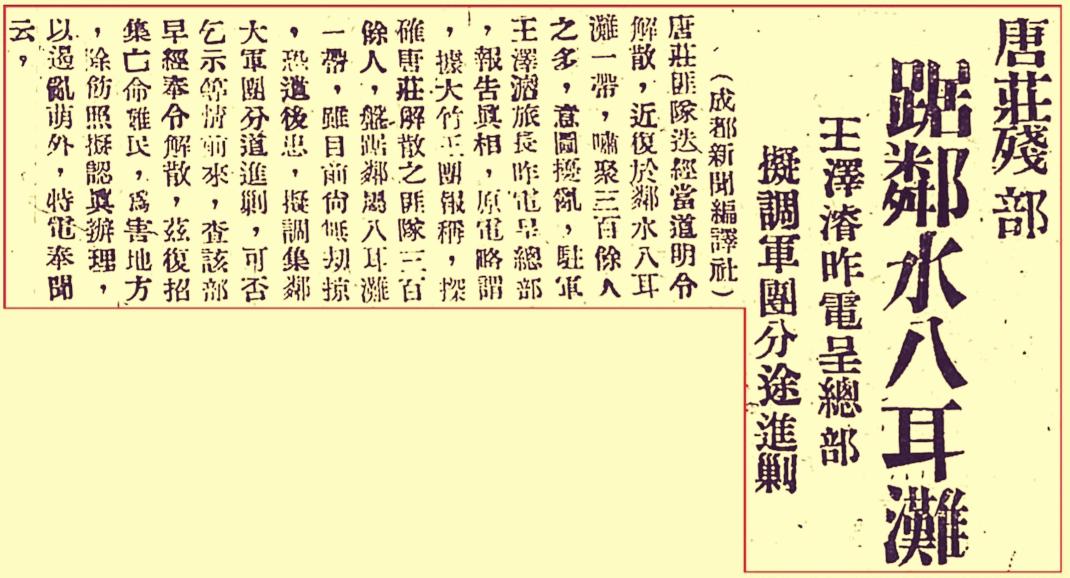 唐莊殘部
踞鄰水八耳灘
王澤濬昨電呈總部
擬調軍團分途進剿
（成都新聞編譯社）
唐莊匪隊迭經當道明令
解散，近復於鄰水八耳
灘一帶，嘯聚三百餘人
之多，意圖擾亂，駐軍
王澤濬旅長昨電呈總部
，報告眞相，原電略謂
，據大竹王團報稱，探
確唐莊解散之匪隊三百
餘人，盤踞鄰屬八耳灘
一帶，雖目前尙無刧掠
，恐遺後患，擬調集鄰
大軍團分道進剿，可否
乞示等情前來，查該部
早經奉令解散，茲復招
集亡命雖民，爲害地方
，除筋照擬認眞辦理，
以遏亂萌外，特電奉聞
云，